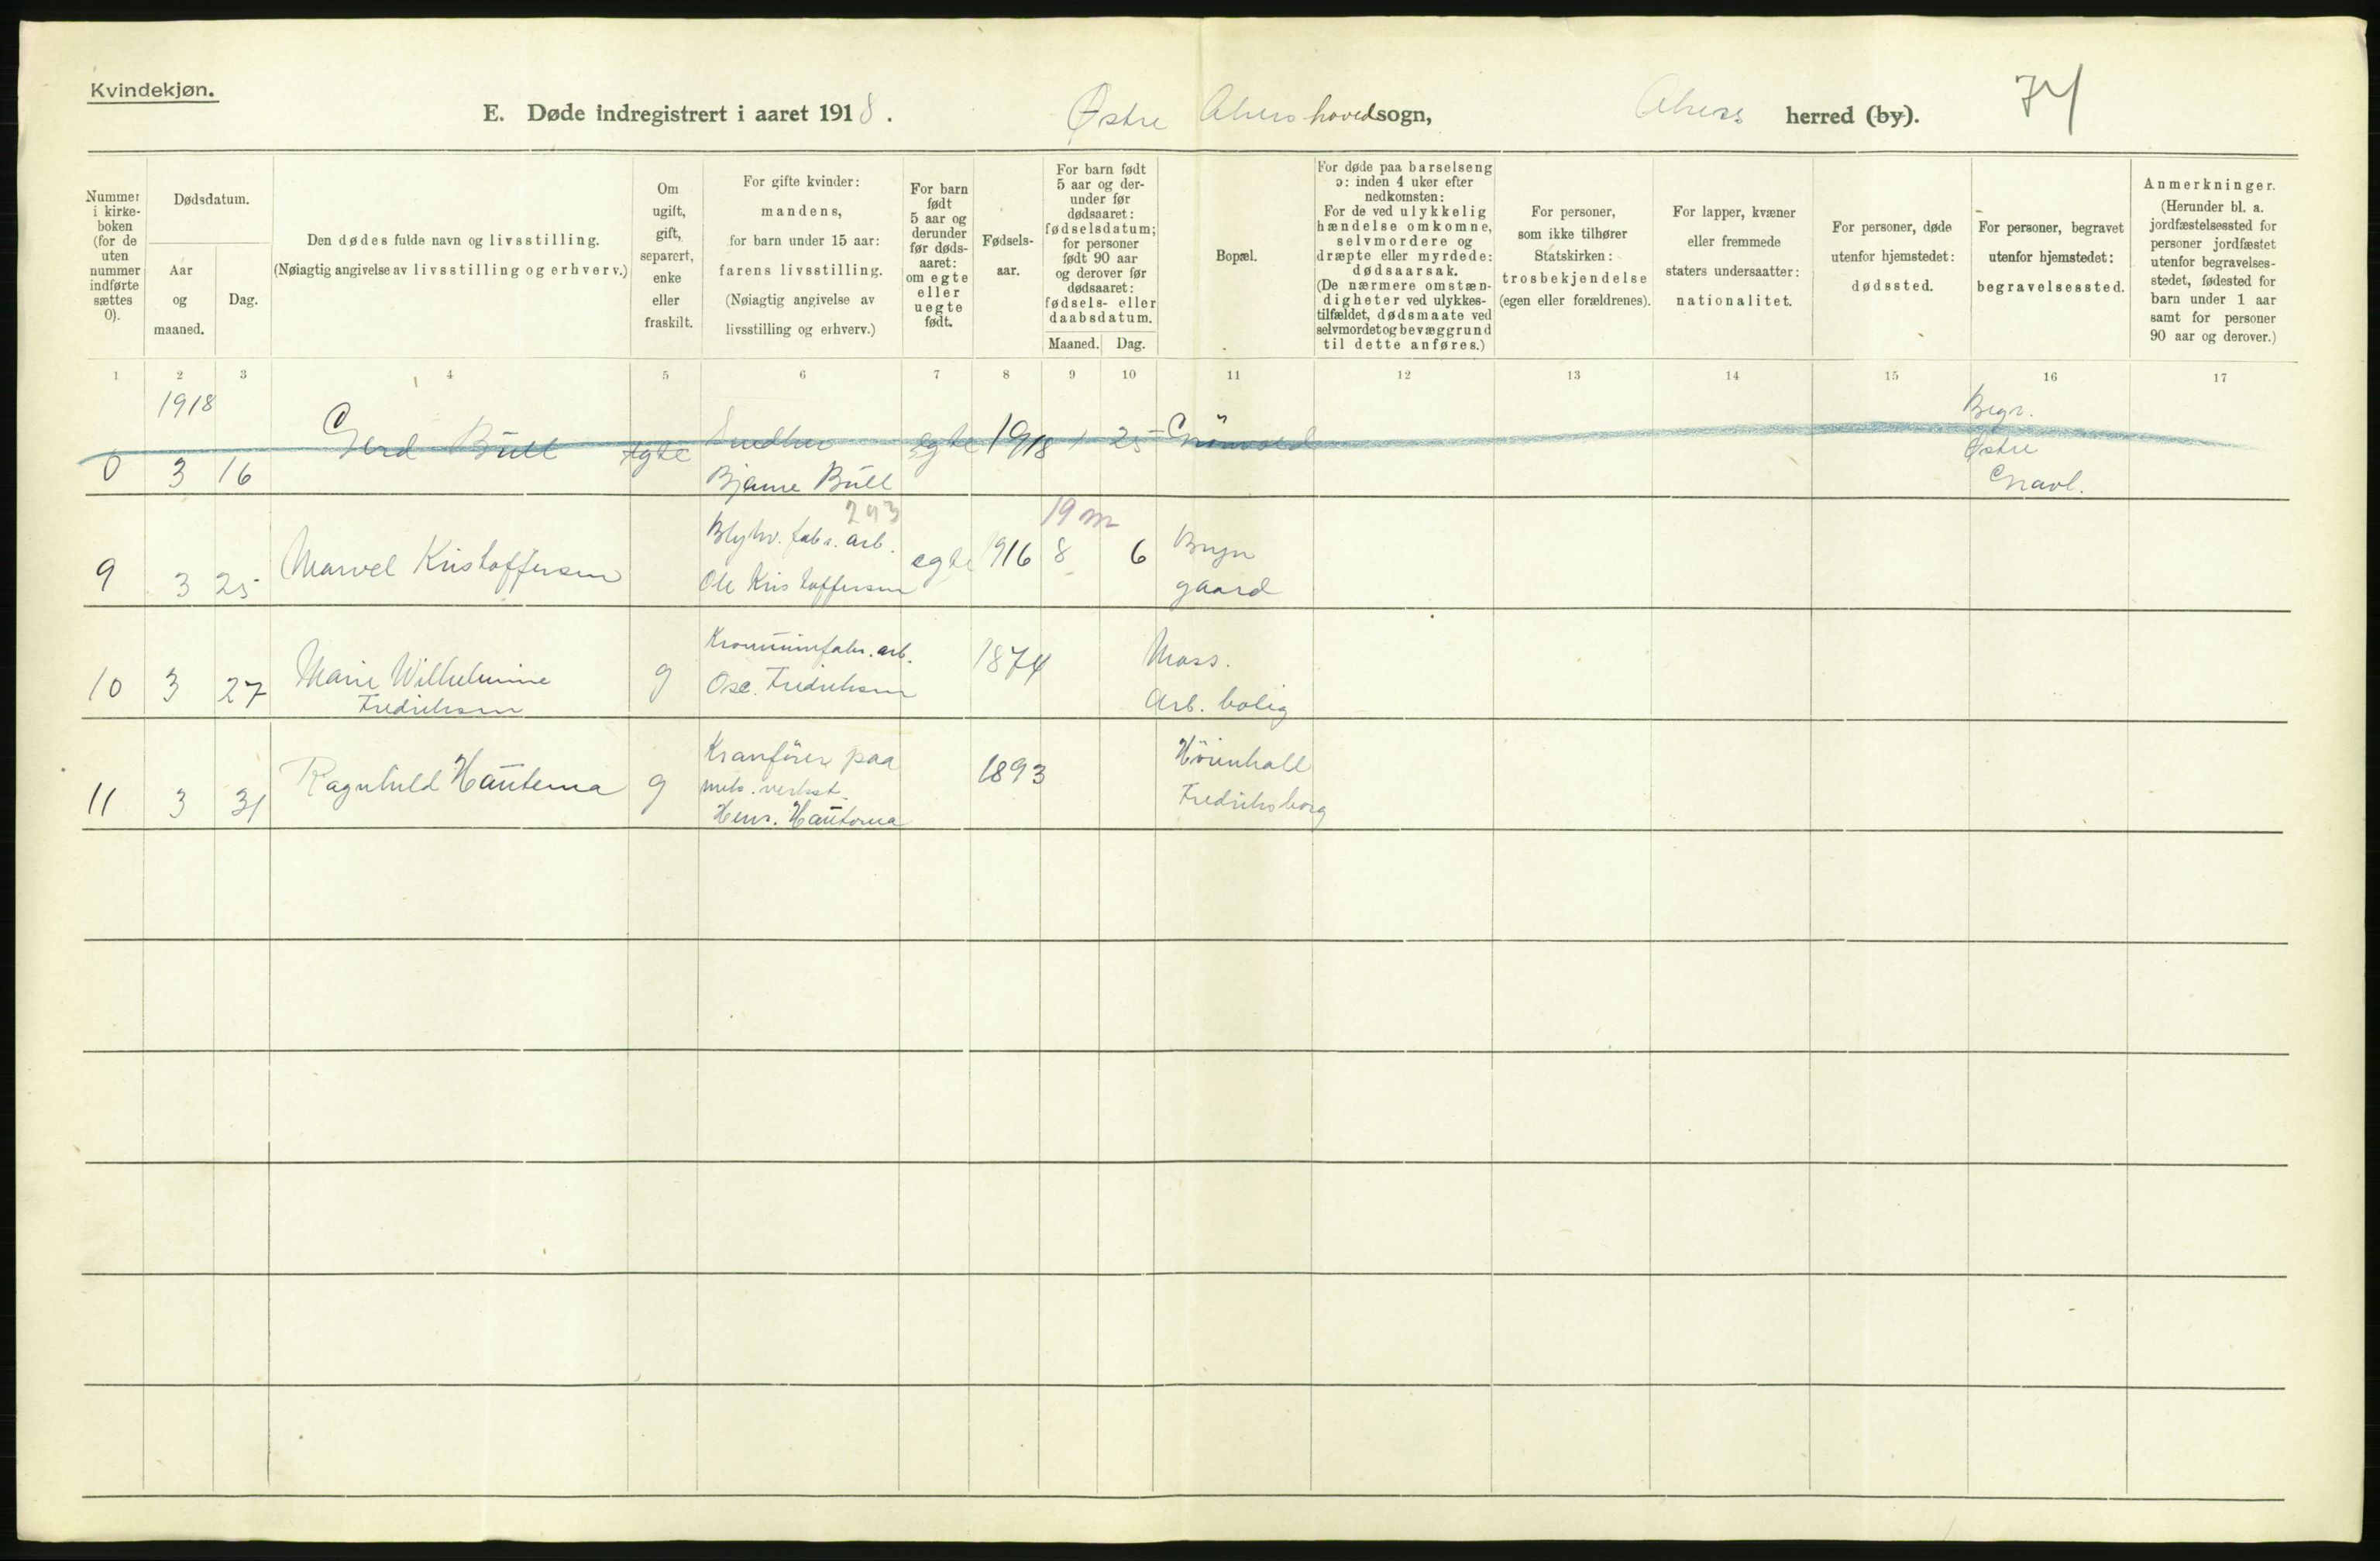 Kvindekjøn.
E. Døde indregistrert i aaret 1918. Østre Akers hovedsogn, Akers herred (by). 74
Nummer i kirke- boken (for de uten nummer indførte sættes 0).
Dødsdatum.
Aar og maaned.
Dag.
Den dødes fulde navn og livsstilling.
(Nøiagtig angivelse av livsstilling og erhverv.)
Om ugift, gift, separert, enke eller fraskilt.
For gifte kvinder: mandens, for barn under 15 aar: farens livsstilling.
(Nøiagtig angivelse av livsstilling og erhverv.)
For barn født 5 aar og derunder før døds- aaret: om egte eller uegte født.
Fødsels- aar.
For barn født 5 aar og der- under før dødsaaret: fødselsdatum; for personer født 90 aar og derover før dødsaaret: fødsels- eller daabsdatum.
Maaned. Dag.
Bopæl.
For døde paa barselseng ɔ: inden 4 uker efter nedkomsten:
For de ved ulykkelig hændelse omkomne, selvmordere og dræpte eller myrdede: dødsaarsak.
(De nærmere omstæn- digheter ved ulykkes- tilfældet, dødsmaate ved selvmordet og bevæggrund til dette anføres.)
For personer, som ikke tilhører Statskirken: trosbekjendelse (egen eller forældrenes).
For lapper, kvæner eller fremmede staters undersaatter: nationalitet.
For personer, døde utenfor hjemstedet: dødssted.
For personer, begravet utenfor hjemstedet: begravelsessted.
Anmerkninger.
(Herunder bl. a. jordfæstelsessted for personer jordfæstet utenfor begravelses- stedet, fødested for barn under 1 aar samt for personer 90 aar og derover.)
1 2 3 4 5 6 7 8 9 10 11 12 13 14 15 16 17
1918
0 3 16 Gerd Büll egte
Bjarne Büll
egte 1918 1 25
Begr.
Østre
Gravl.
293
19 m
9 3 25 Marvel Kristoffersen
Blyhv. fabr. arb.
Ole Kristoffersen
egte 1916 8 6
Bryn
gaard
10 3 27 Marie Wilhelmine
Fredriksen
g
Osc. Fredriksen
1874
Moss.
Arb. bolig
11 3 31 Ragnhild Hautema g
Kranfører paa
mek. verkst.
Henr. Hautoma
1893
Fredriksborg